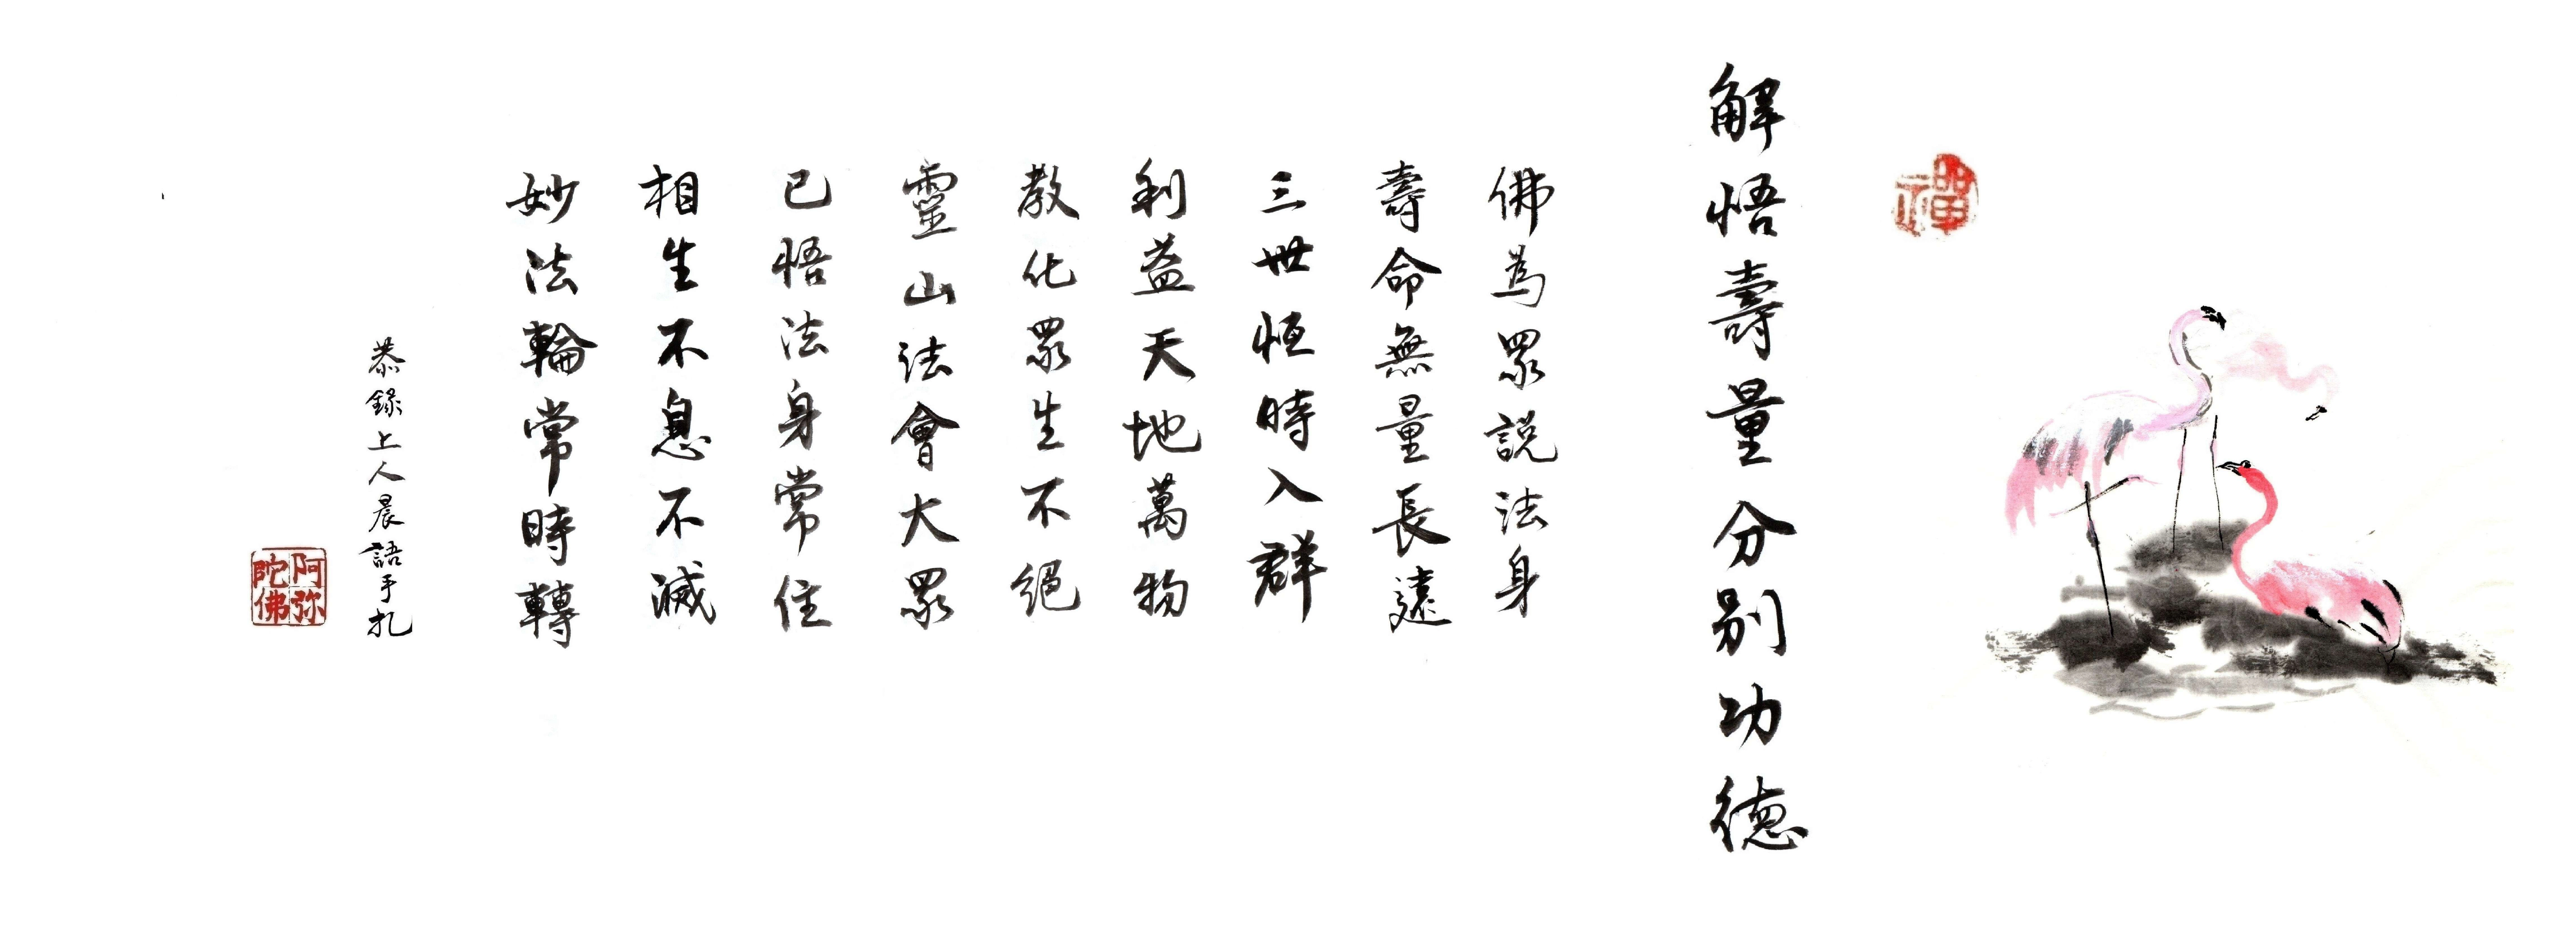 禪
解悟壽量分別功德
佛為眾說法身
壽命無量長遠
三世恒時入群
利益天地萬物
教化眾生不絕
靈山法會大眾
已悟法身常住
相生不息不滅
妙法輪常時轉
恭錄上人晨語手札
阿弥陀佛